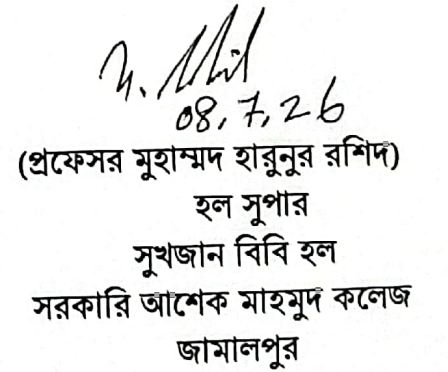 08.7.26
(প্রফেসর মুহাম্মদ হারুনুর রশিদ)
হল সুপার
সুখজান বিবি হল
সরকারি আশেক মাহমুদ কলেজ
জামালপুর